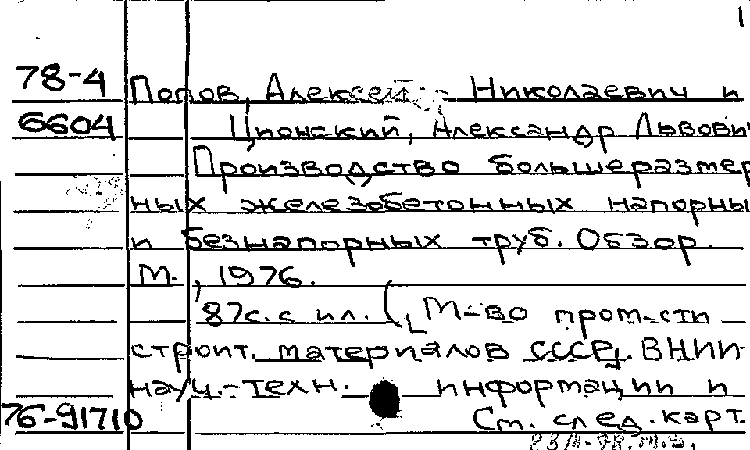 1
78-4 Попов, Алексей Николаевич и
6604 Ционский, Александр Львови
Производство большеразмер
ных железобетонных напорны
и безнапорных труб. Обзор.
М., 1976.
87с. с ил. (М-во пром-сти
строит. материалов СССР, ВНИИ
науч.-техн. информации и
76-91710 См. след. карт.